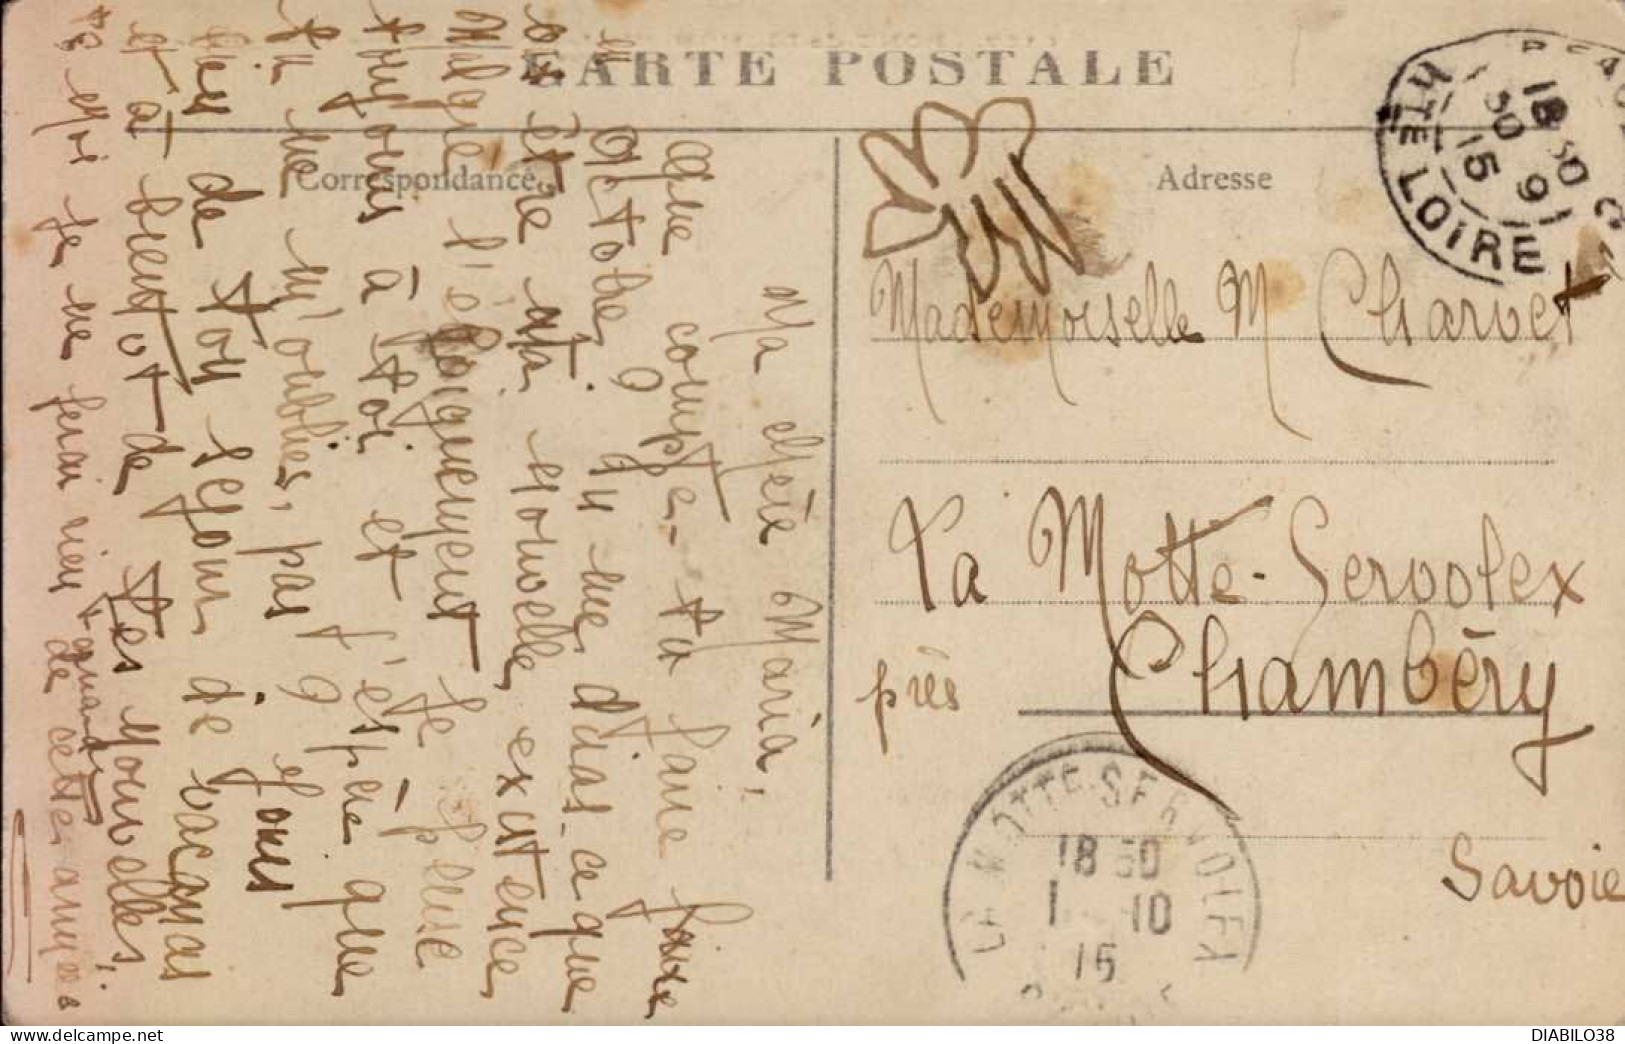 CARTE POSTALE
Correspondance
Adresse
Ma chère Maria,
Que comptes-tu faire faire
en Octobre? Tu me diras ce que
va être ta nouvelle existence.
Malgré l'éloignement je pense
toujours à toi et j'espère que
tu ne m'oublies pas? Jouis
bien de ton séjour de vacances
et à bientôt de tes nouvelles,
Moi je ne ferai rien
quand
de cette année
Mademoiselle M Charvet
La Motte-Servolex
près Chambéry
Savoie
HTE LOIRE
18 30
30 9
15
LA MOTTE-SERVOLEX
18 30
1 10
15
DIABILO38